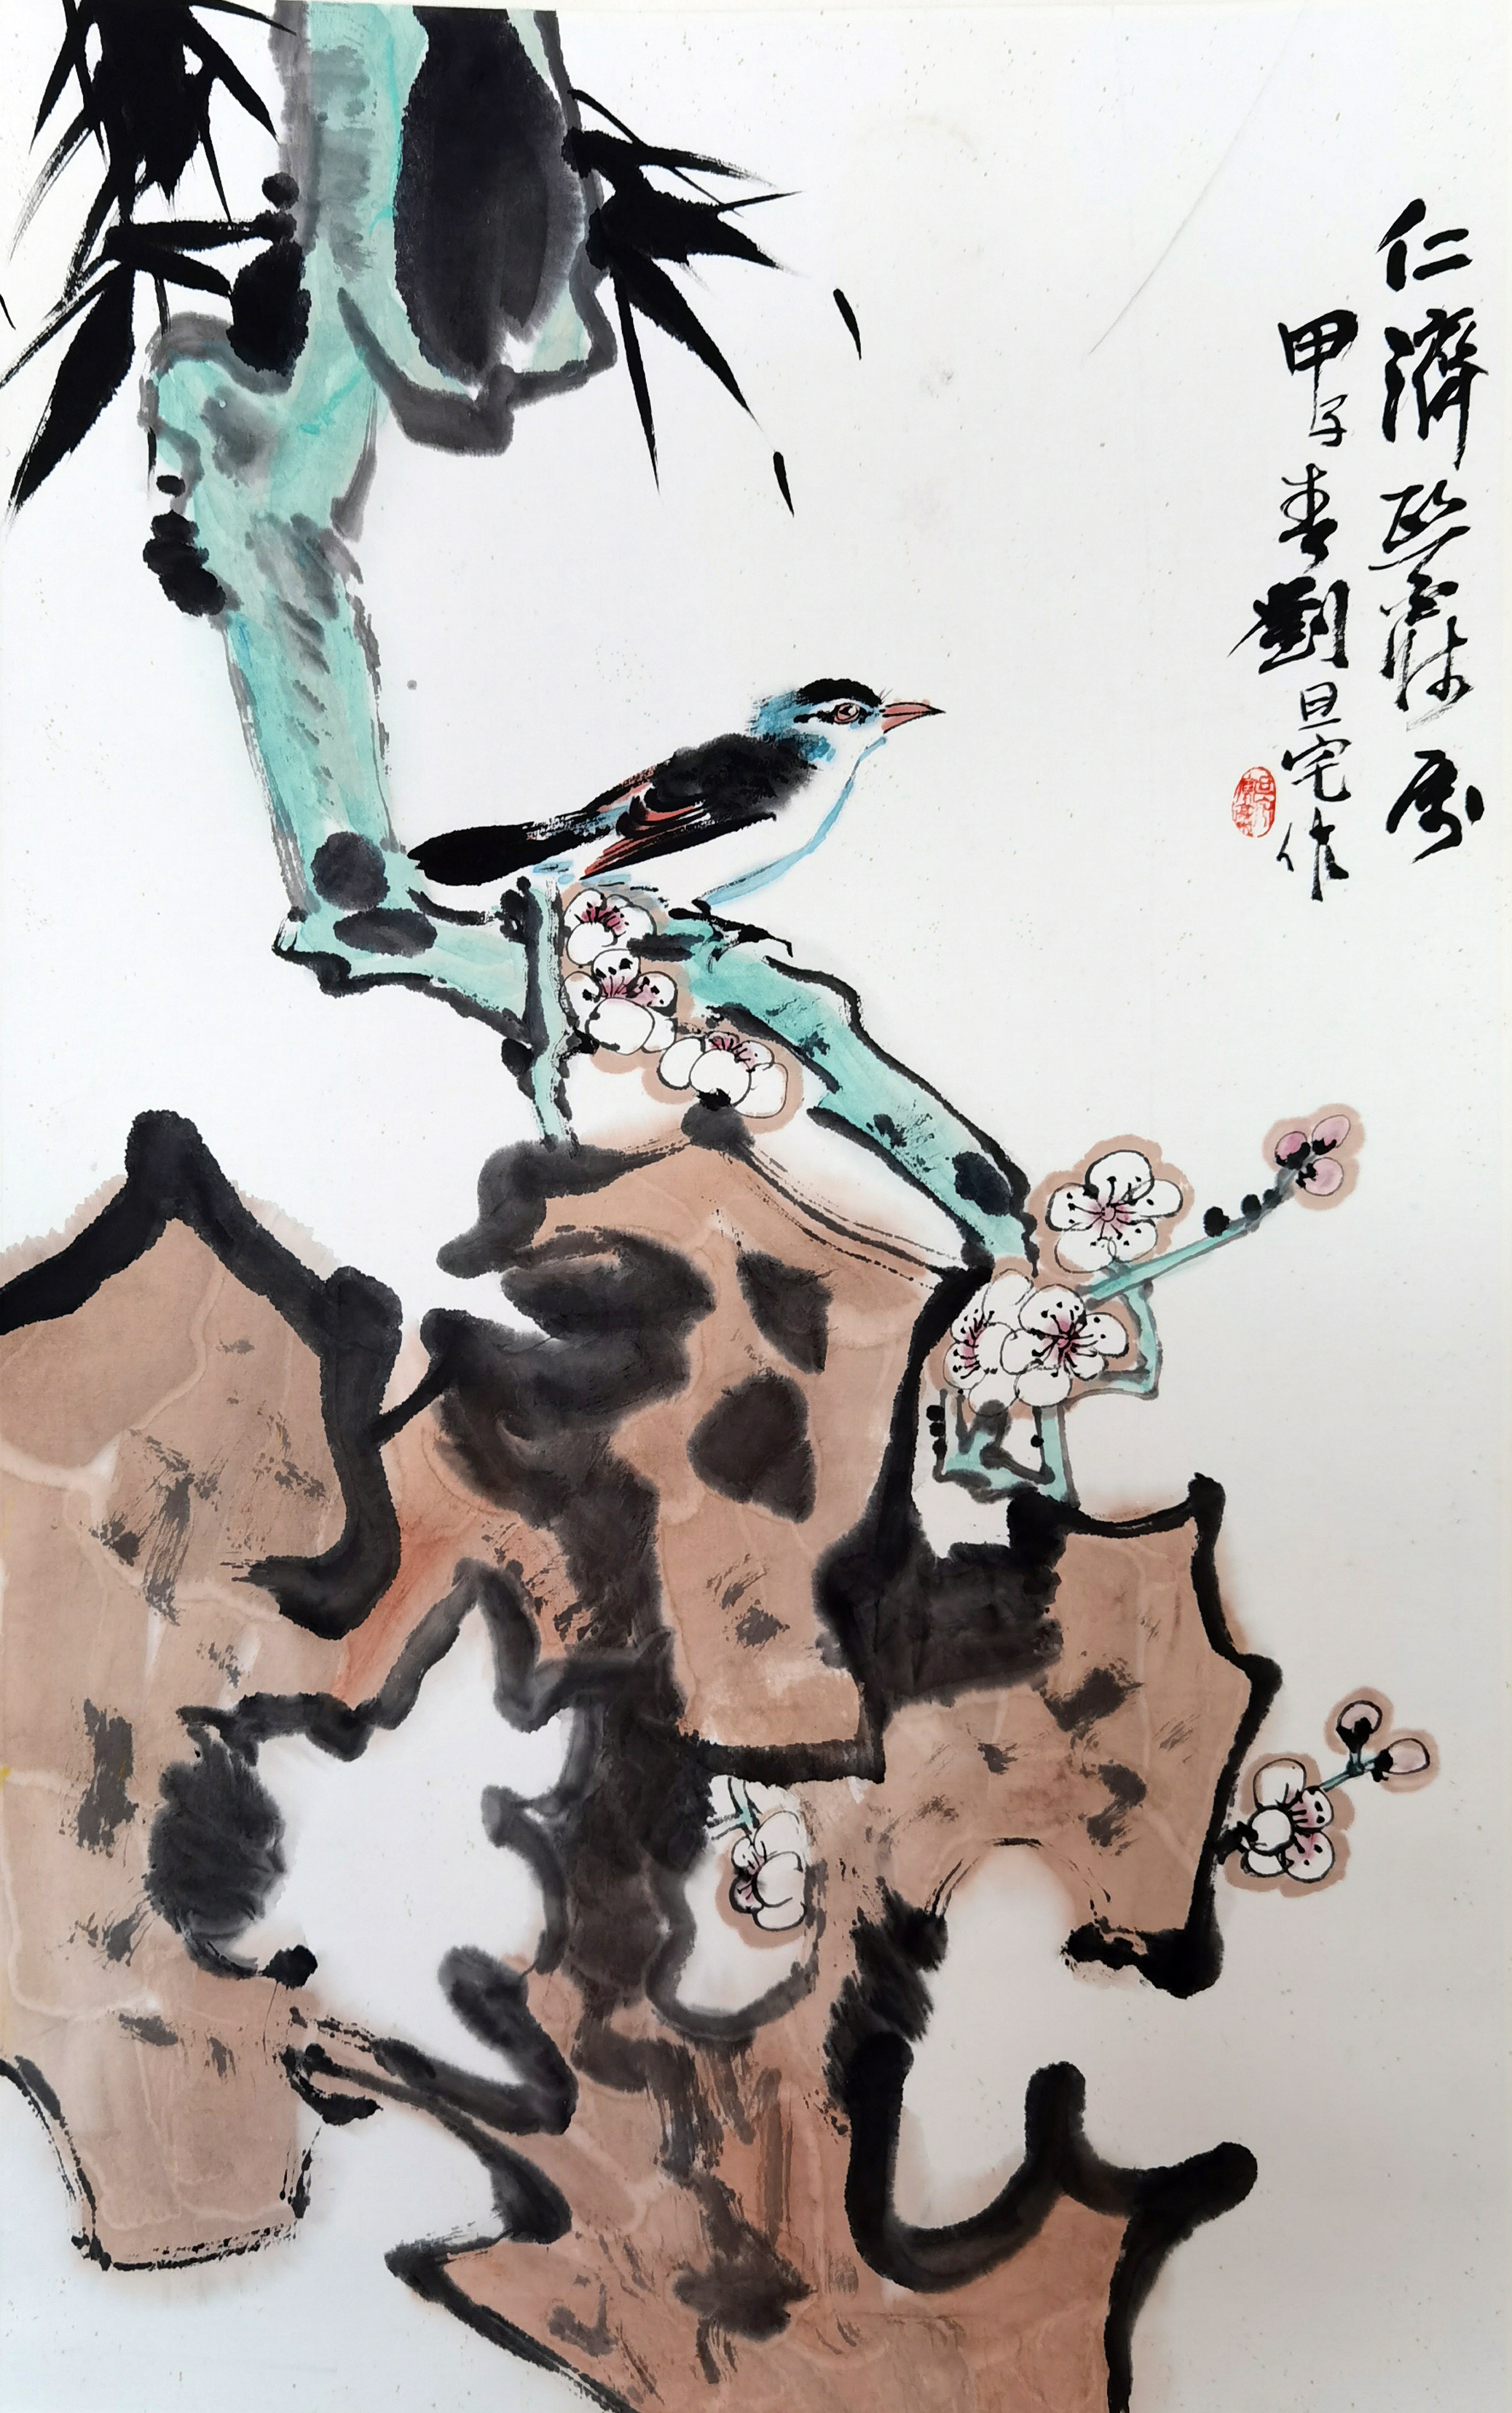 仁濟醫院屬
甲子春劉旦宅作